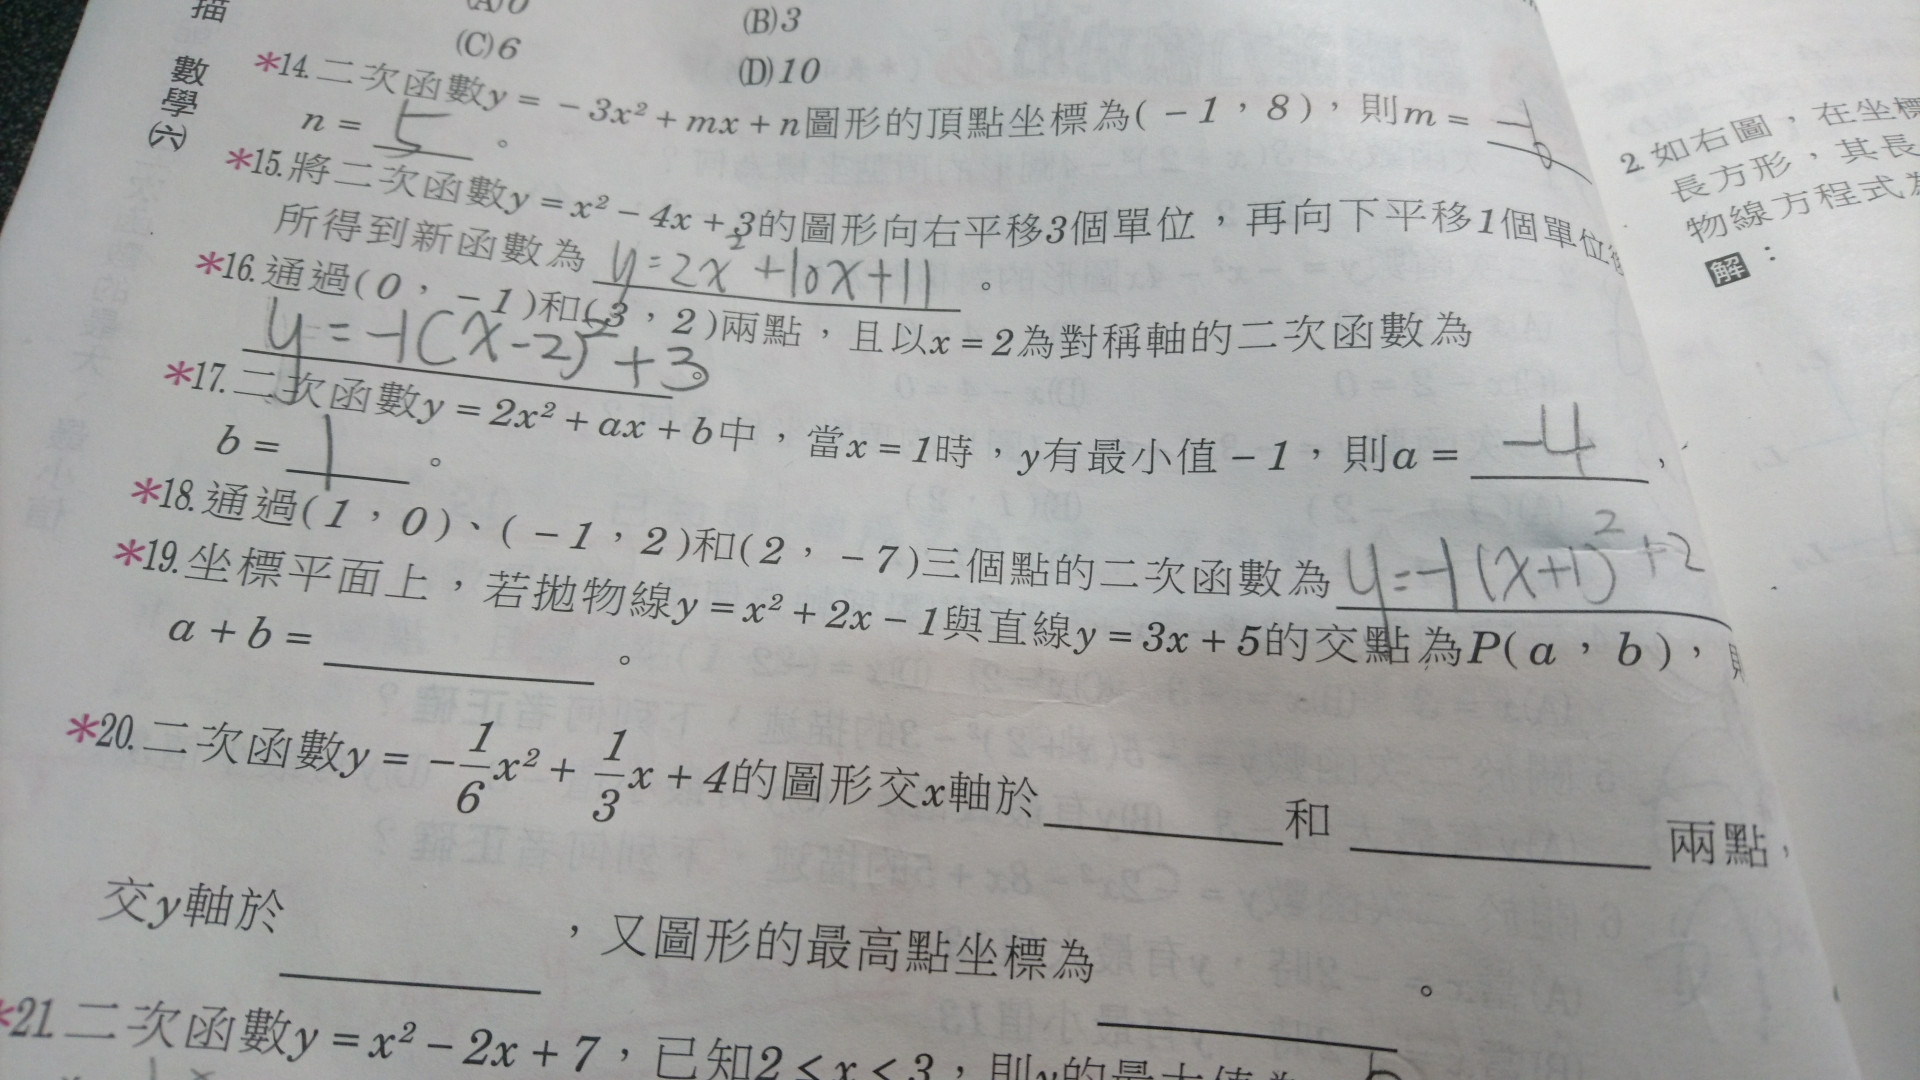 描
數學(六)
(A)0
(B)3
(C)6
(D)10
*14.二次函數y=-3x²+mx+n圖形的頂點坐標為(-1,8),則m=
n= 5 。
*15.將二次函數y=x²-4x+3的圖形向右平移3個單位,再向下平移1個單位
所得到新函數為 y=2x²+10x+11 。
*16.通過(0,-1)和(3,2)兩點,且以x=2為對稱軸的二次函數為
y=-1(x-2)²+3 。
*17.二次函數y=2x²+ax+b中,當x=1時,y有最小值-1,則a= -4 ,
b= 1 。
*18.通過(1,0)、(-1,2)和(2,-7)三個點的二次函數為 y=-1(x+1)²+2
*19.坐標平面上,若拋物線y=x²+2x-1與直線y=3x+5的交點為P(a,b),
a+b= 。
*20.二次函數y=-1/6x²+1/3x+4的圖形交x軸於 和 兩點,
交y軸於 ,又圖形的最高點坐標為 。
*21.二次函數y=x²-2x+7,已知2<x<3,則y的最大值為
2.如右圖,在坐標
長方形,其長
物線方程式為
解: